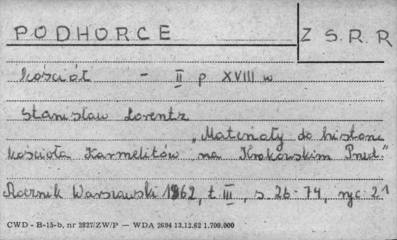 PODHORCE
Z S. R. R
Kościół - II p XVIII w
Stanisław Lorentz
„Materiały do historii
kościoła Karmelitów na Krakowskim Przed."
Rocznik Warszawski 1962, t III, s. 26-74, ryc. 21
CWD - B-15-b, nr 2827/ZW/P — WDA 2604 13.12.62 1.700.000